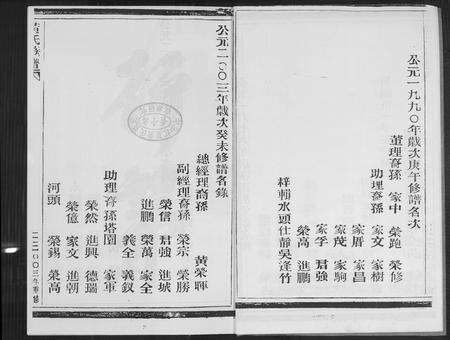 公元一九九〇年歲次庚午修譜名次
董理裔孫 家中 榮跑 榮修
助理裔孫 家文 家樹
家厝 家昌
家茂 家駒
家孚 君強
榮高 進鵬
梓輔水頭仕靜吳逢竹
公元二〇〇三年歲次癸未修譜名錄
總經理裔孫 黃榮暉
副經理裔孫 榮宗 榮勝
榮信 君強 進城
進鵬 榮萬 家全
義全 義釵
助理裔孫塔園 家軍
榮然 進興 德瑞
榮億 家文 進朝
河頭 榮錫 榮高
黃氏族譜
二〇〇三年重修